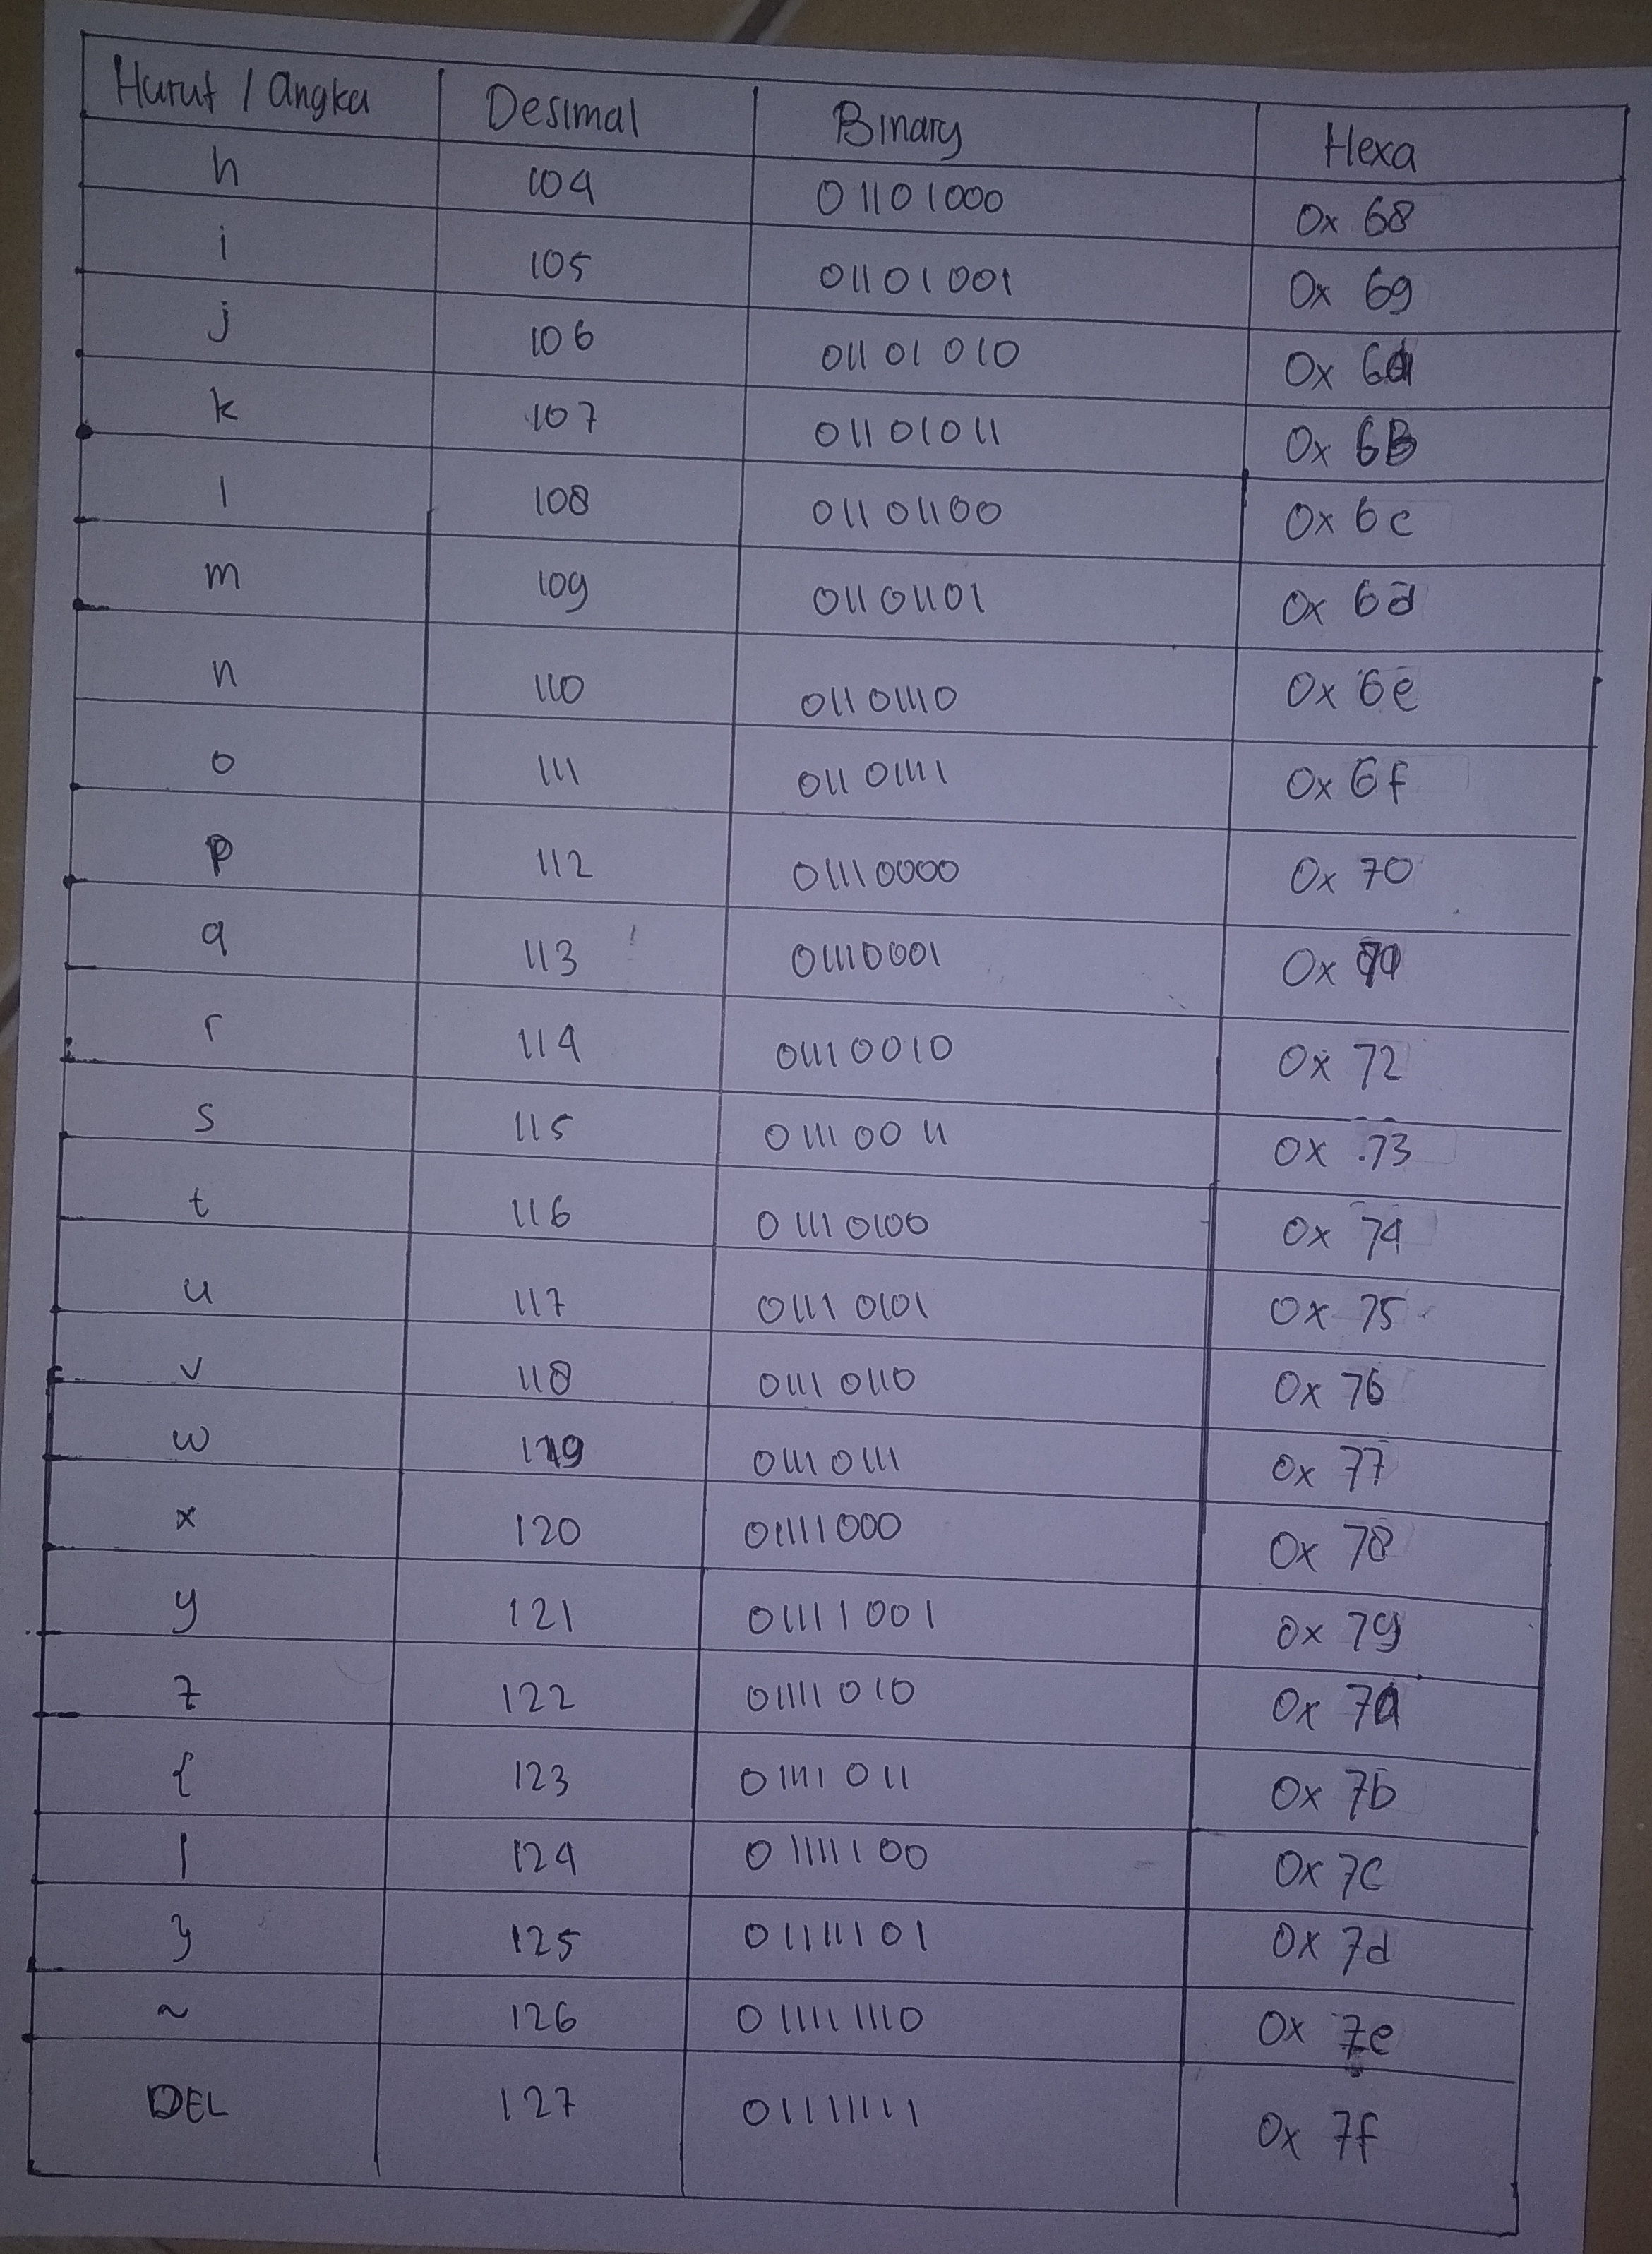 Huruf / Angka Desimal Binary Hexa
h 104 01101000 0x 68
i 105 01101001 0x 69
j 106 01101010 0x 6a
k 107 01101011 0x 6B
l 108 01101100 0x 6c
m 109 01101101 0x 6d
n 110 01101110 0x 6e
o 111 01101111 0x 6f
p 112 01110000 0x 70
q 113 01110001 0x
r 114 01110010 0x 72
s 115 01110011 0x 73
t 116 01110100 0x 74
u 117 01110101 0x 75
v 118 01110110 0x 76
w 119 01110111 0x 77
x 120 01111000 0x 78
y 121 01111001 0x 79
z 122 01111010 0x 7a
{ 123 01111011 0x 7b
| 124 01111100 0x 7c
} 125 01111101 0x 7d
~ 126 011111110 0x 7e
DEL 127 01111111 0x 7f